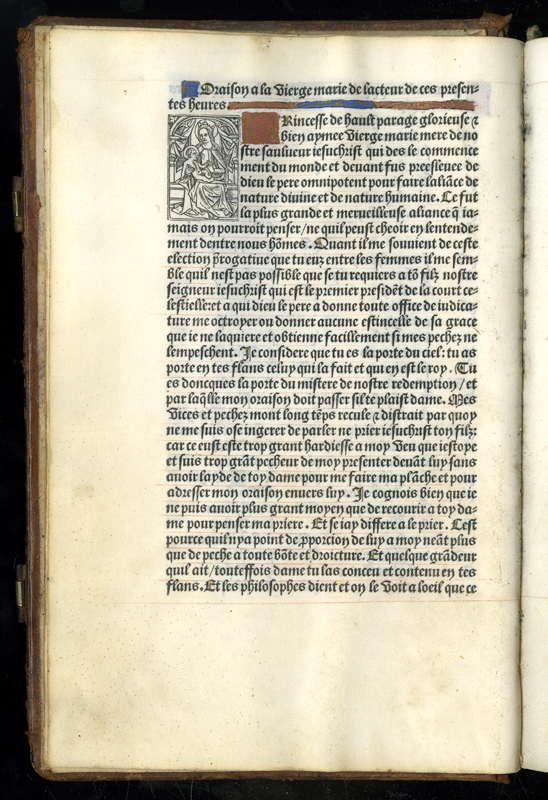 Oraison a la Vierge marie de lacteur de ces presen-
tes heures.
PRincesse de hault parage glorieuse ⁊
bien aymee Vierge marie mere de no
stre saulueur iesuchrist qui des le commence
ment du monde et deuant fus preesleuee de
dieu le pere omnipotent pour faire laliāce de
nature diuine et de nature humaine. Ce fut
la plus grande et merueilleuse aliance q̄ ia-
mais on pourroit penser/ne quil peust cheoir en lentende-
ment dentre nous hōmes. Quant il me souuient de ceste
election p̄rogatiue que tu euz entre les femmes il me sem-
ble quil nest pas possible que se tu requiers a tō filz nostre
seigneur iesuchrist qui est le premier presidēt de la court ce-
lestielle:et a qui dieu le pere a donne toute office de iudica-
ture me octroyer ou donner aucune estincelle de sa grace
que ie ne laquiere et obtienne facillement si mes pechez ne
lempeschent. Je considere que tu es la porte du ciel: tu as
porte en tes flans celuy qui la fait et qui en est le roy. Tu
es doncques la porte du mistere de nostre redemption/et
par laq̄lle mon oraison doit passer sil te plaist dame. Mes
Vices et pechez mont long tēps recule ⁊ distrait par quoy
ne me suis ose ingerer de parler ne prier iesuchrist ton filz:
car ce eust este trop grant hardiesse a moy Veu que iestoye
et suis trop grāt pecheur de moy presenter deuāt luy sans
auoir layde de toy dame pour me faire ma plāche et pour
adresser mon oraison enuers luy. Je cognois bien que ie
ne puis auoir plus grant moyen que de recourir a toy da-
me pour penser ma priere. Et se iay differe a le prier. Cest
pource quil nya point de p̄porcion de luy a moy neāt plus
que de peche a toute bōte et droicture. Et quelque grādeur
quil ait/touteffois dame tu las conceu et contenu en tes
flans. Et les philosophes dient et on le Voit a loeil que ce